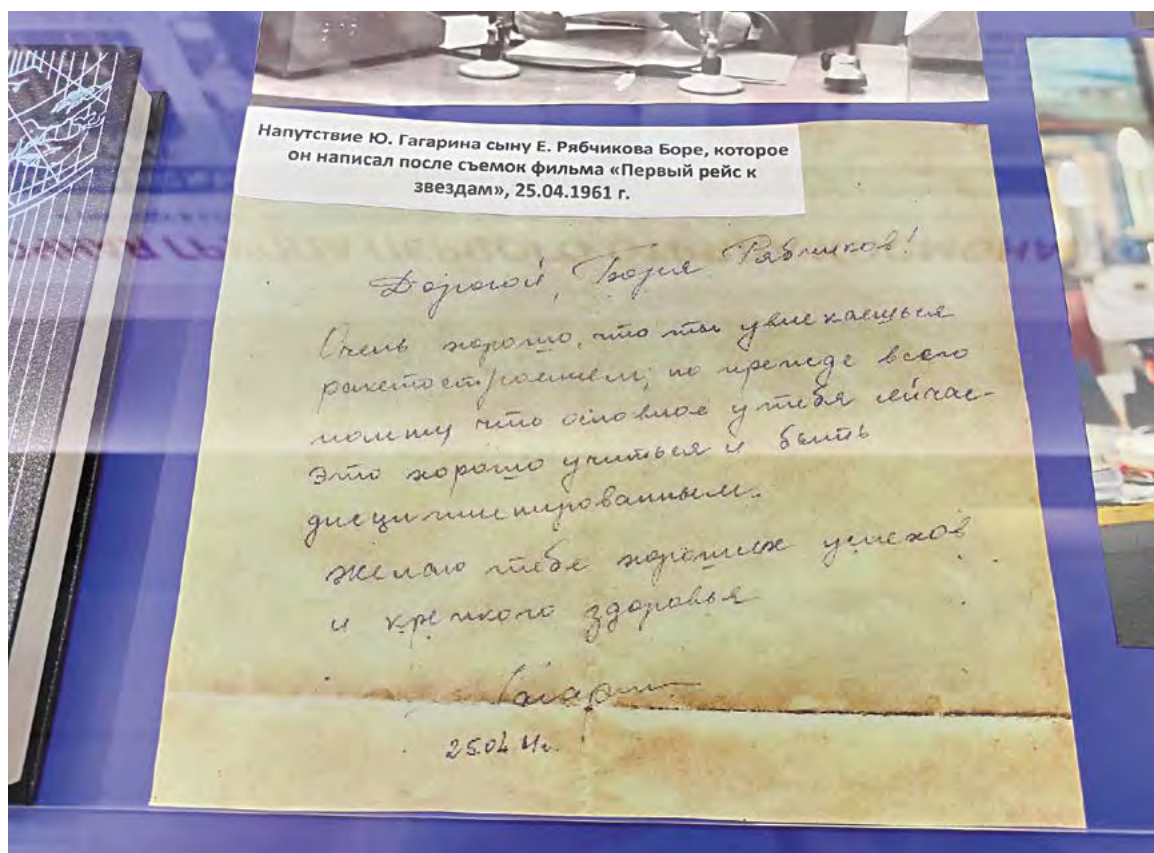 Напутствие Ю. Гагарина сыну Е. Рябчикова Боре, которое
он написал после съемок фильма «Первый рейс к
звездам», 25.04.1961 г.
Дорогой, Боря Рябчиков!
Очень хорошо, что ты увлекаешься
ракетостроением, но прежде всего
помни что основное у тебя сейчас-
Это хорошо учиться и быть
дисциплинированным.
Желаю тебе хороших успехов
и крепкого здоровья
Гагарин
25.04